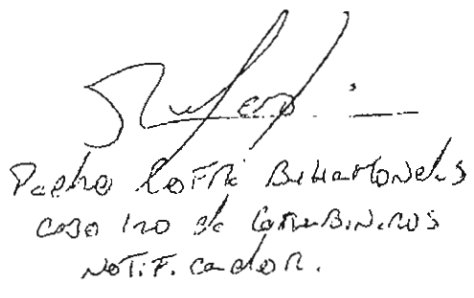 Pedro Cofré Bahamondes
Cabo 1ro de Carabineros
Notificador.